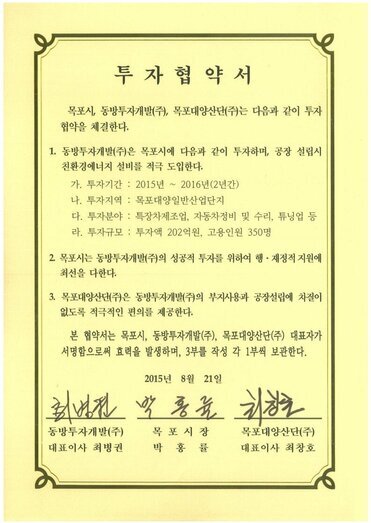 투자협약서
목포시, 동방투자개발(주), 목포대양산단(주)는 다음과 같이 투자
협약을 체결한다.
1. 동방투자개발(주)은 목포시에 다음과 같이 투자하며, 공장 설립시
친환경에너지 설비를 적극 도입한다.
가. 투자기간 : 2015년 ~ 2016년(2년간)
나. 투자지역 : 목포대양일반산업단지
다. 투자분야 : 특장차제조업, 자동차정비 및 수리, 튜닝업 등
라. 투자규모 : 투자액 202억원, 고용인원 350명
2. 목포시는 동방투자개발(주)의 성공적 투자를 위하여 행·재정적 지원에
최선을 다한다.
3. 목포대양산단(주)은 동방투자개발(주)의 부지사용과 공장설립에 차질이
없도록 적극적인 편의를 제공한다.
본 협약서는 목포시, 동방투자개발(주), 목포대양산단(주) 대표자가
서명함으로써 효력을 발생하며, 3부를 작성 각 1부씩 보관한다.
2015년 8월 21일
최병권 박홍률 최창호
동방투자개발(주) 목포시장 목포대양산단(주)
대표이사 최병권 박홍률 대표이사 최창호